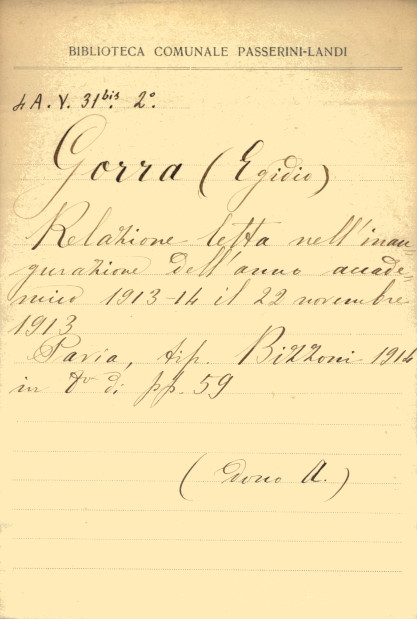 BIBLIOTECA COMUNALE PASSERINI-LANDI
4 A. V. 31 bis. 2º.
Gorra (Egidio)
Relazione letta nell'inau=
gurazione dell'anno accade=
mico 1913-14 il 22 novembre
1913
Pavia, tip. Bizzoni 1914
in 8º di pp. 59
(dono A.)